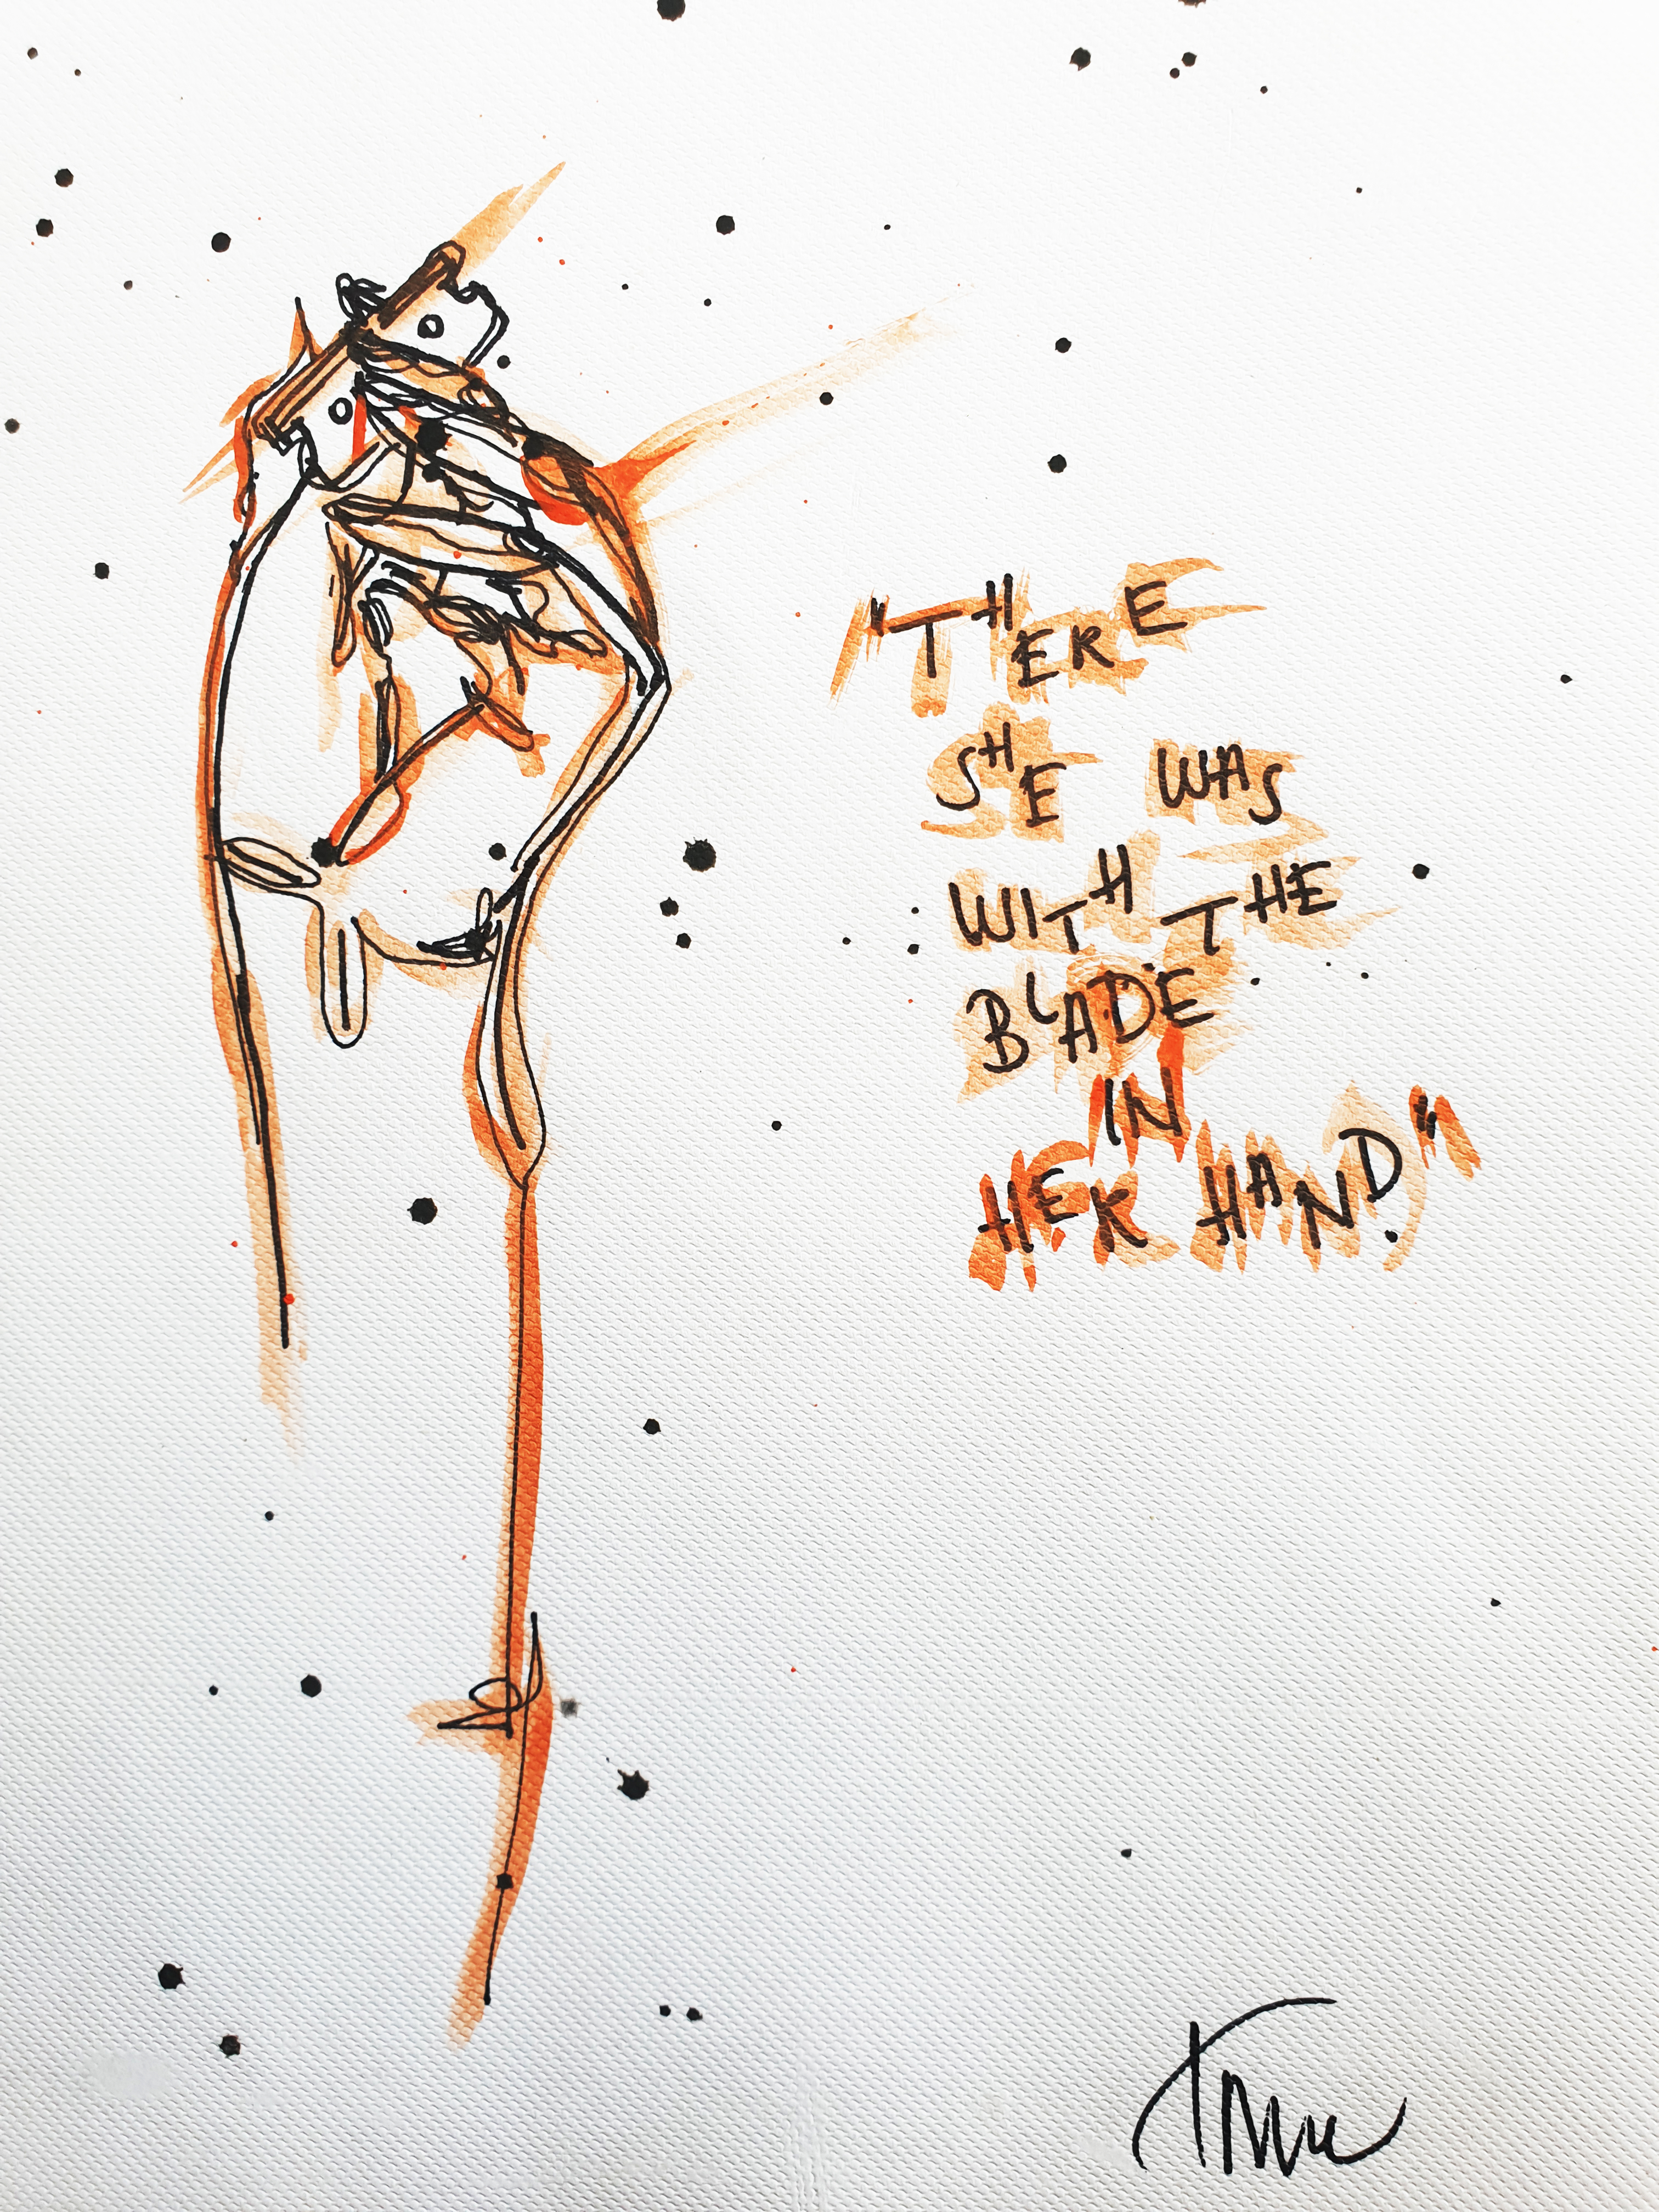 "THERE
SHE WAS
WITH THE
BLADE
IN
HER HAND"